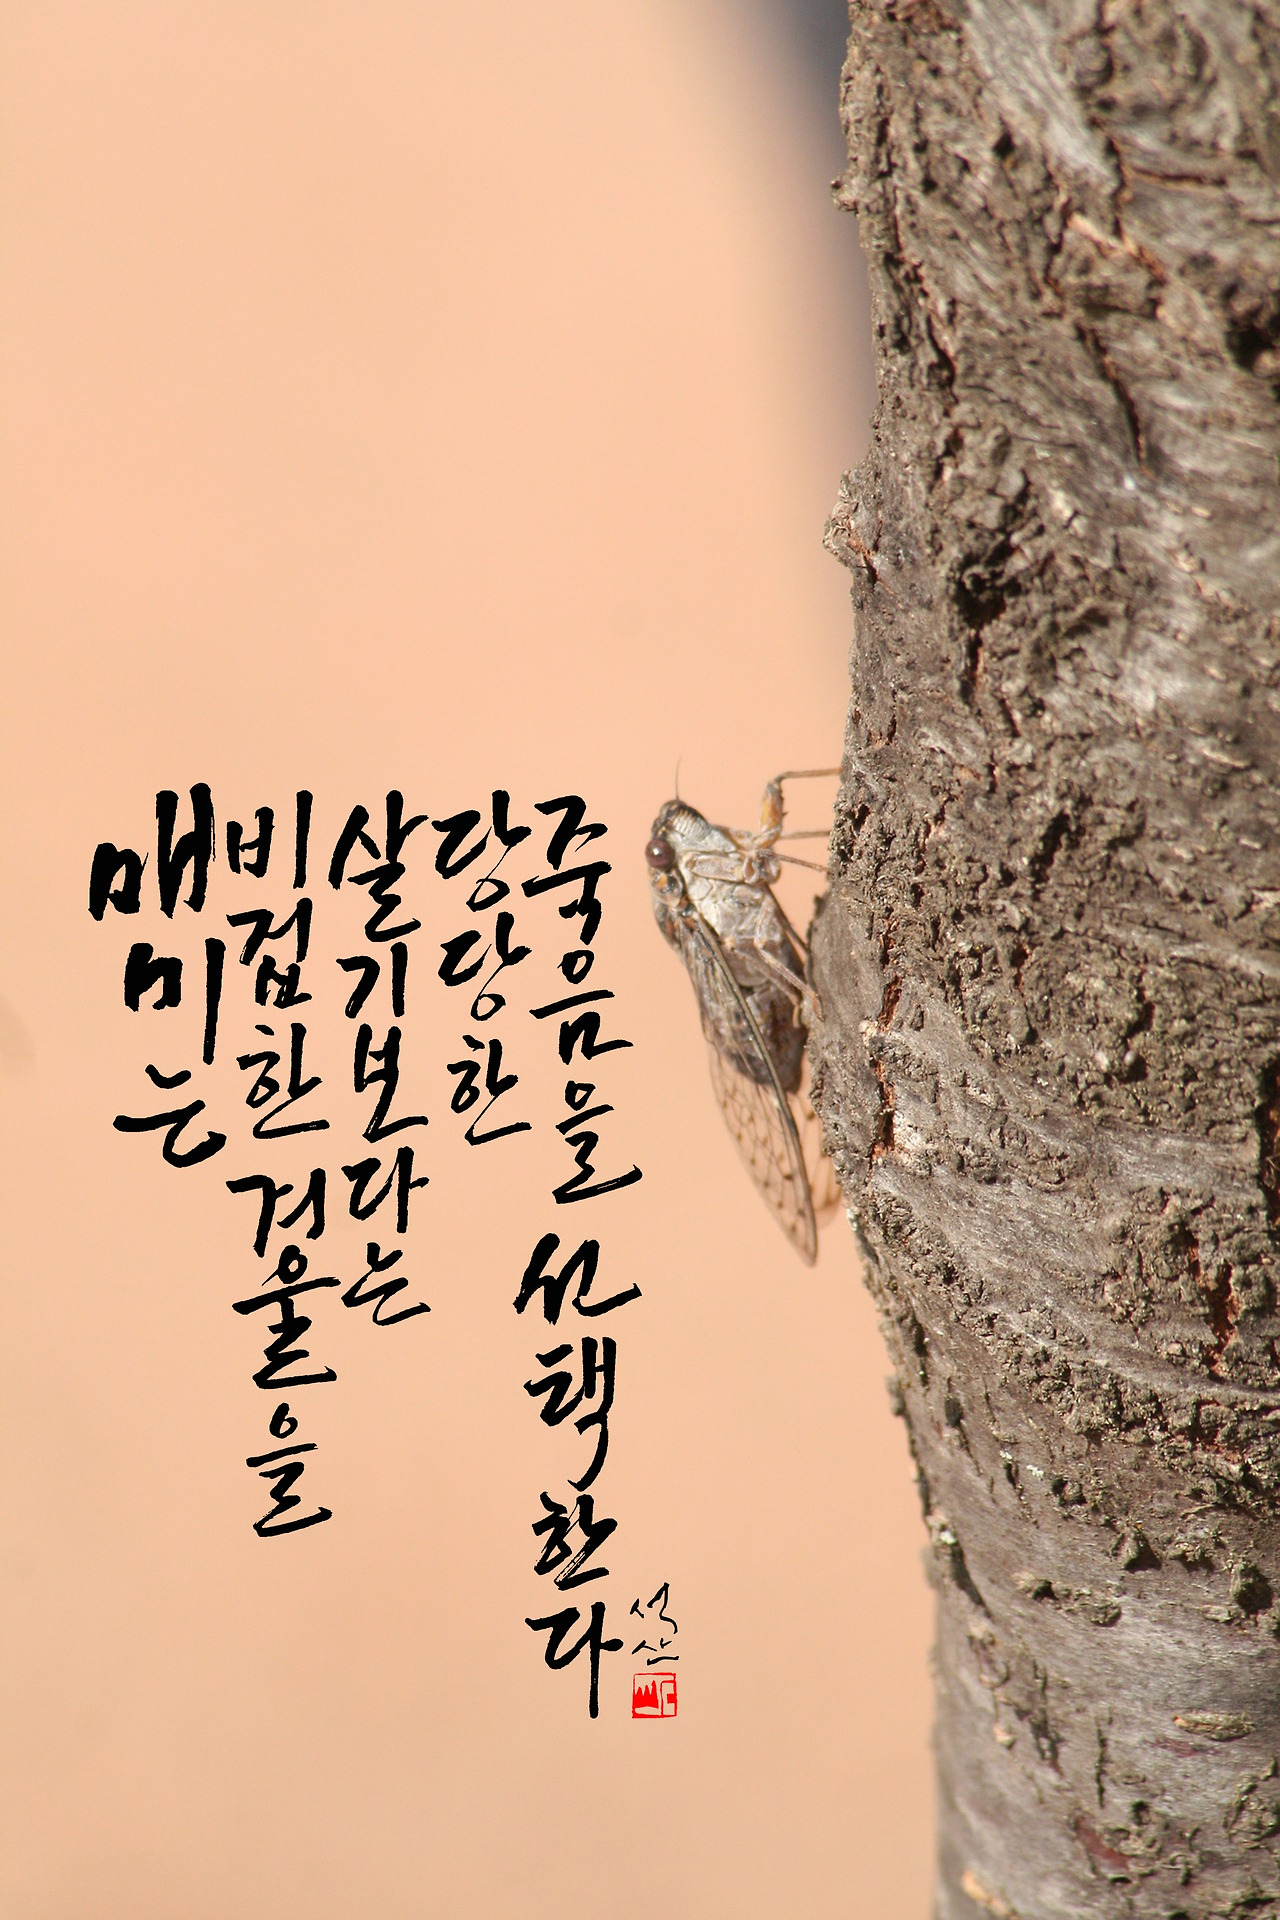 매미는
비겁한 겨울을
살기보다는
당당한
죽음을 선택한다
석산